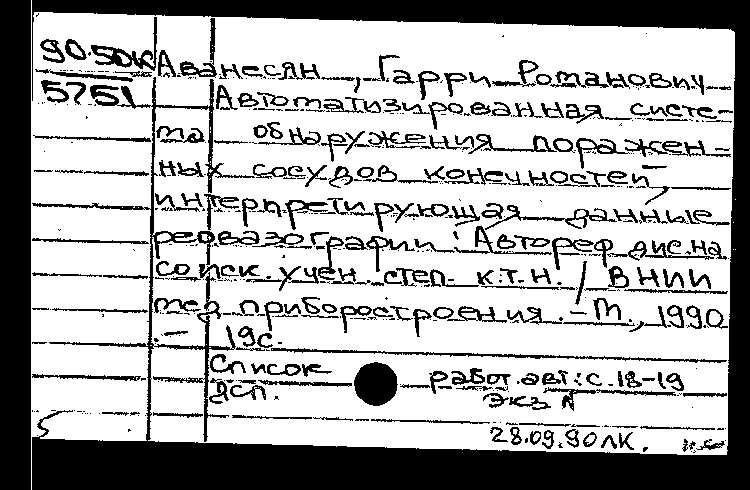 90.50К Аванесян, Гарри Романович
5751 Автоматизированная систе-
ма обнаружения поражен-
ных сосудов конечностей,
интерпретирующая данные
реовазографии: Автореф дис. на
соиск. учен. степ. к.т.н. / ВНИИ
мед приборостроения. – М., 1990
. – 19с.
Список работ. авт.: с. 18-19
ДСП. Экз N
28.09.90ЛК.
5